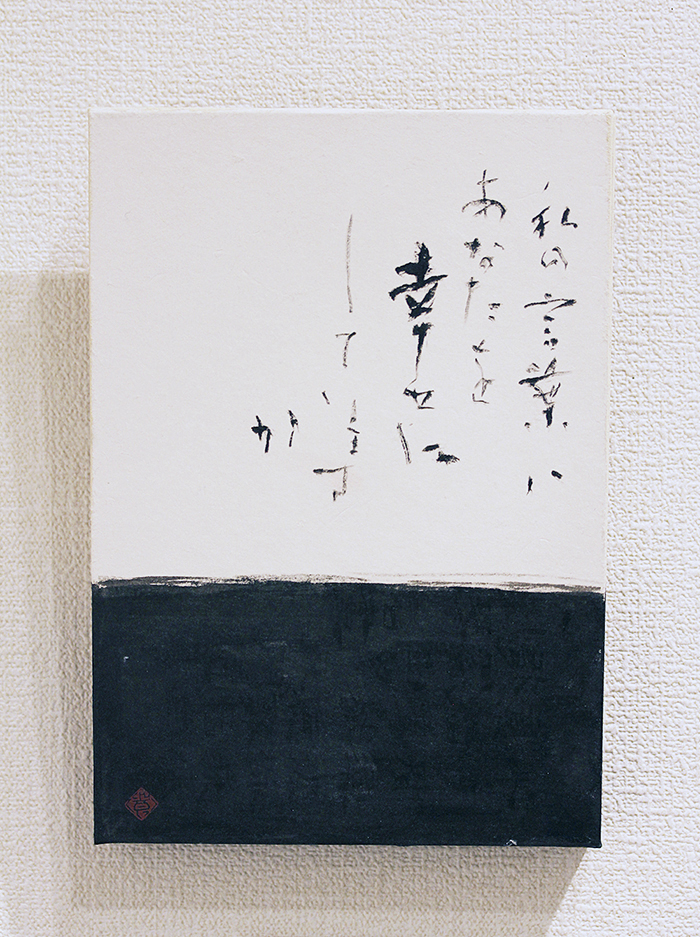 私の言葉は
あなたを
幸せに
しています
か